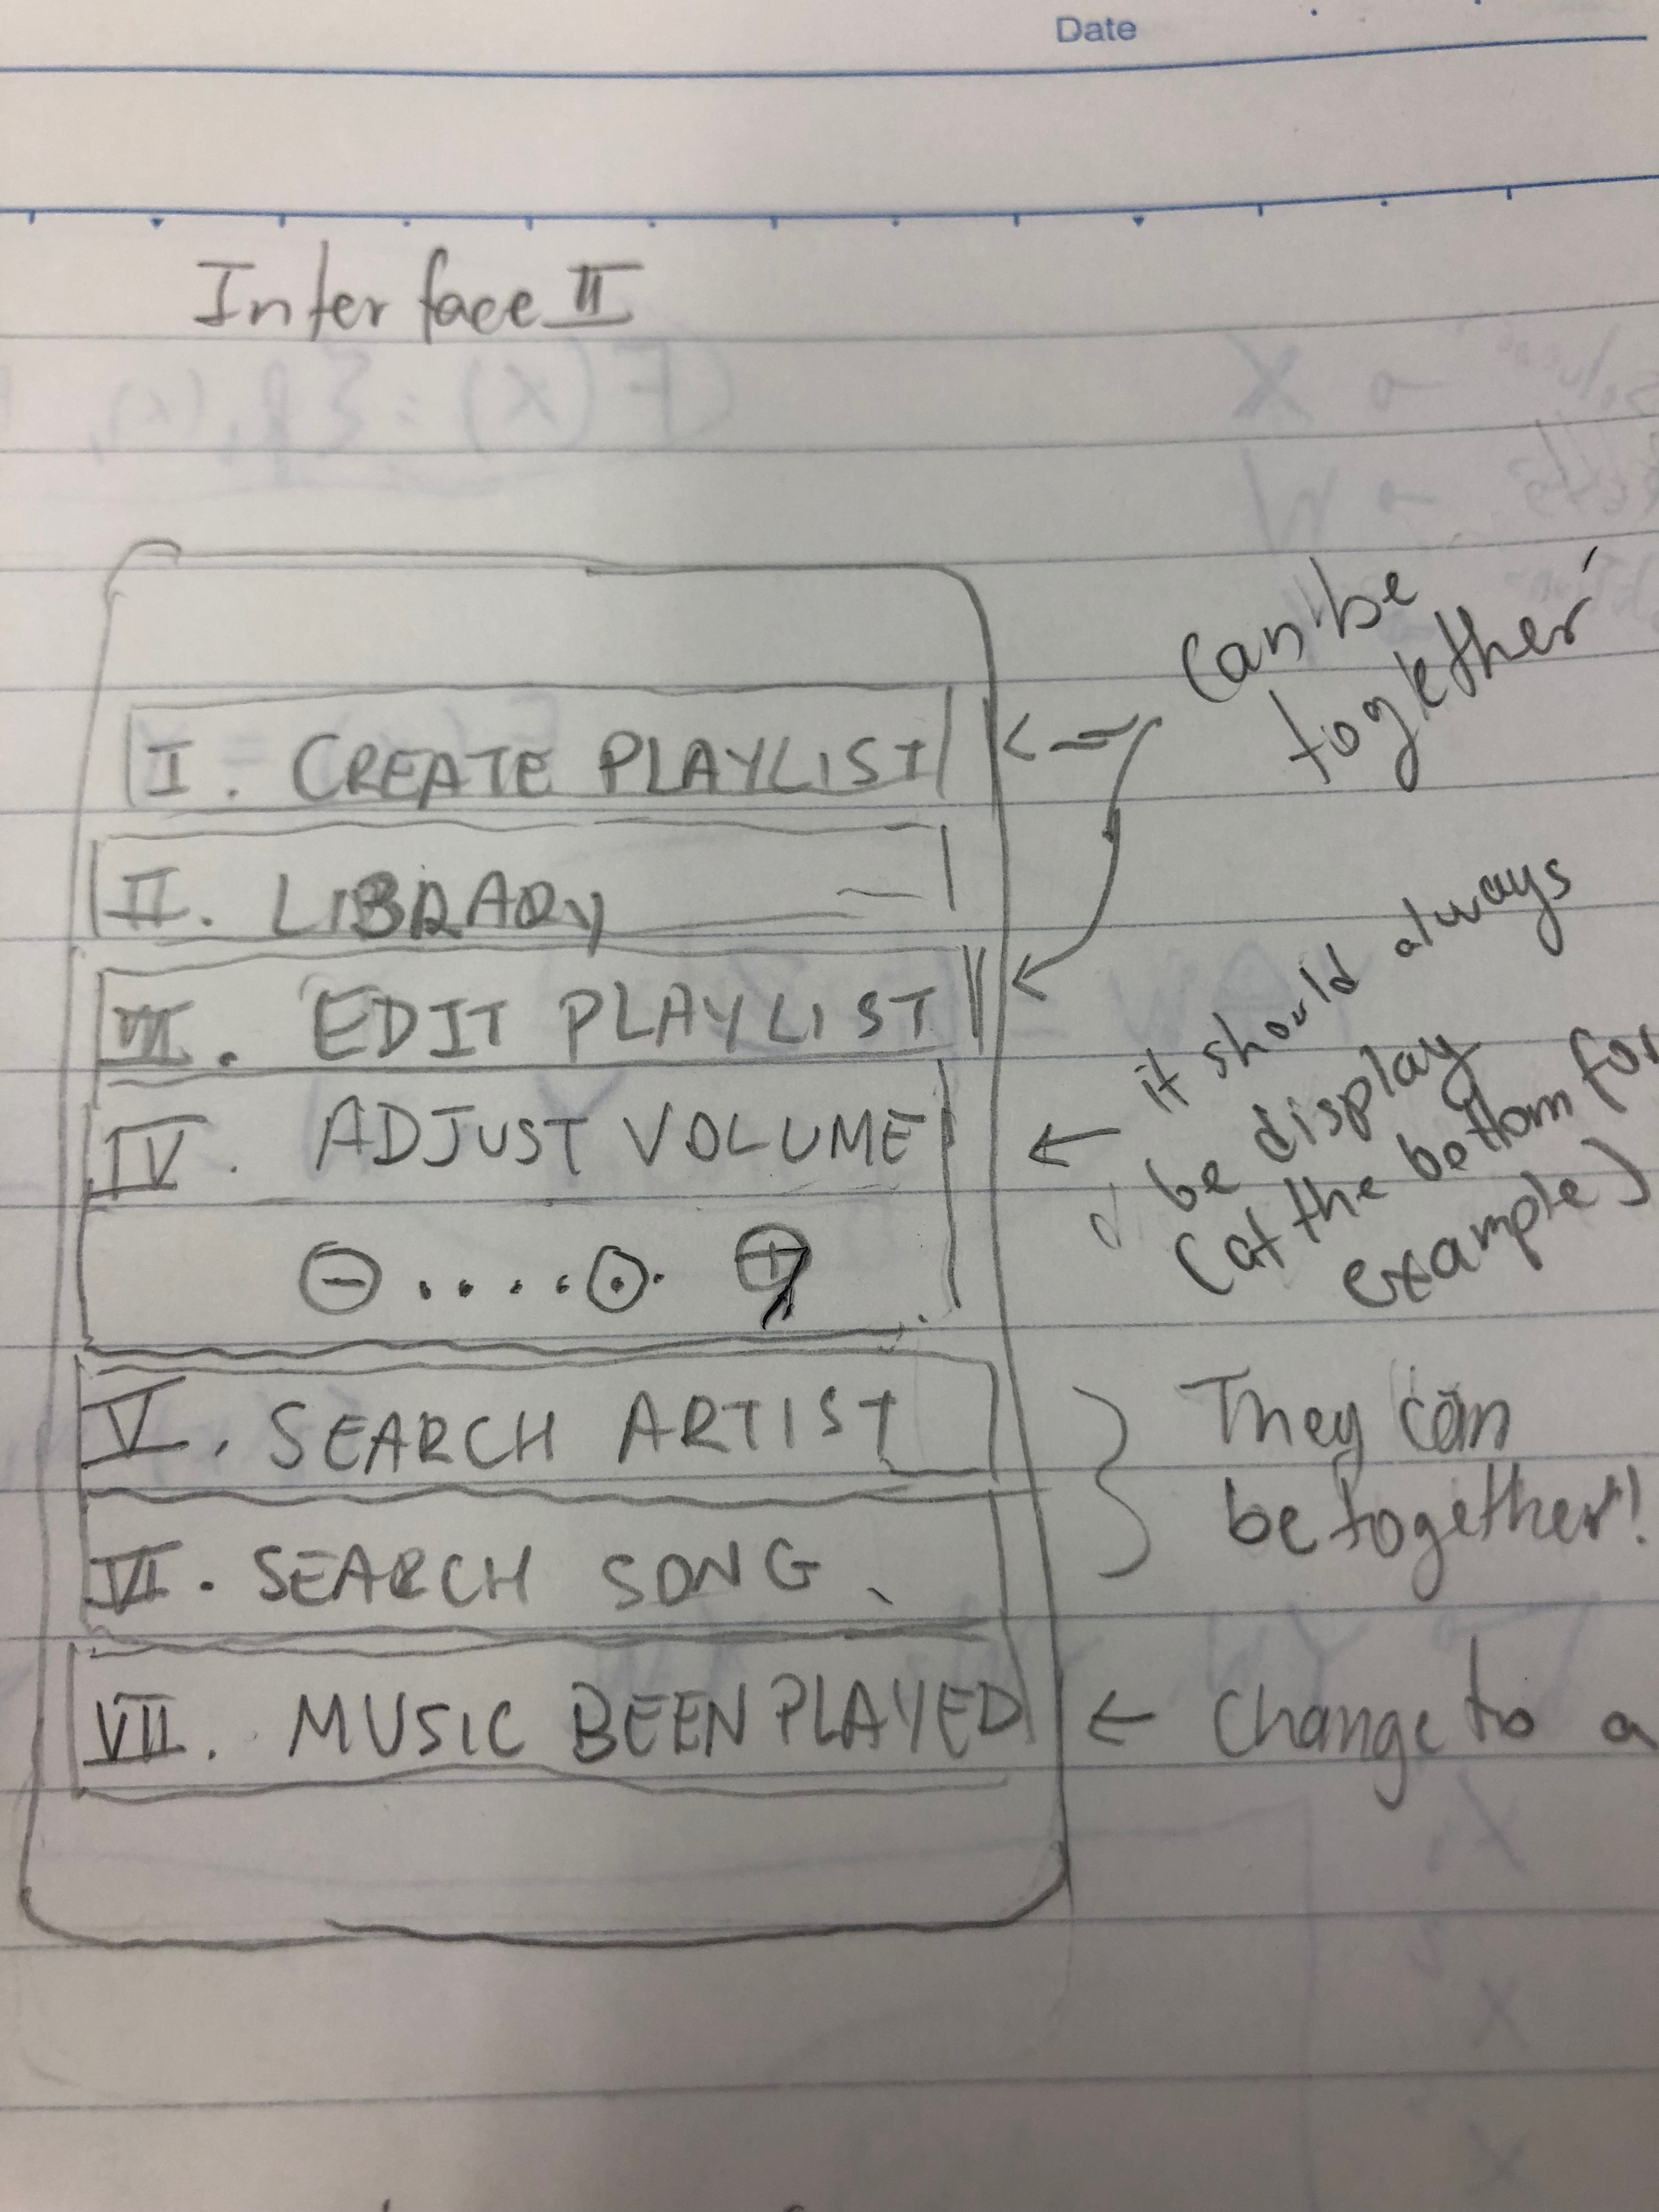 Date
Interface II
Can be
together
I. CREATE PLAYLIST
II. LIBRARY
III. EDIT PLAYLIST
IV. ADJUST VOLUME
it should always
be display
(at the bottom for
example)
V. SEARCH ARTIST
VI. SEARCH SONG
They can
be together!
VII. MUSIC BEEN PLAYED
Change to a